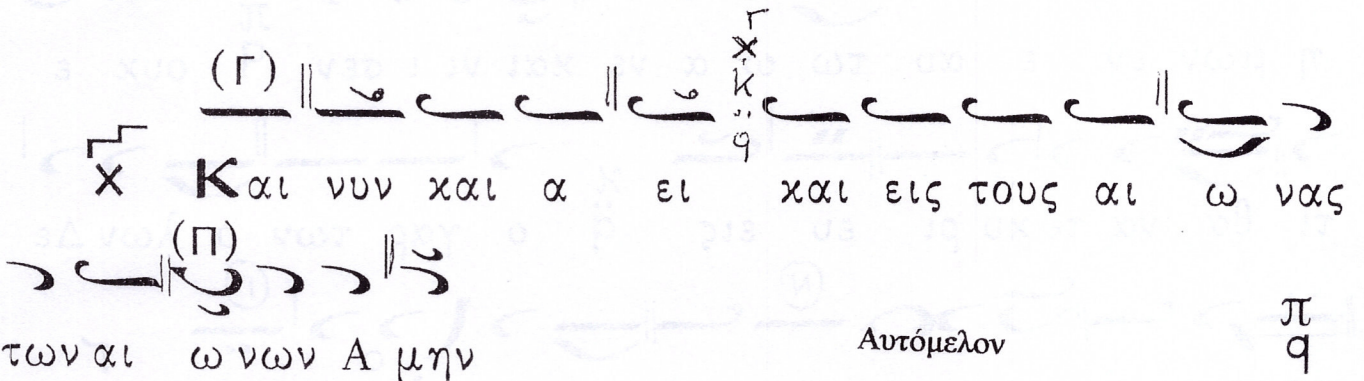 (Γ)
Και νυν και α ει και εις τους αι ω νας
(Π)
των αι ω νων Α μην
Αυτόμελον
π
q